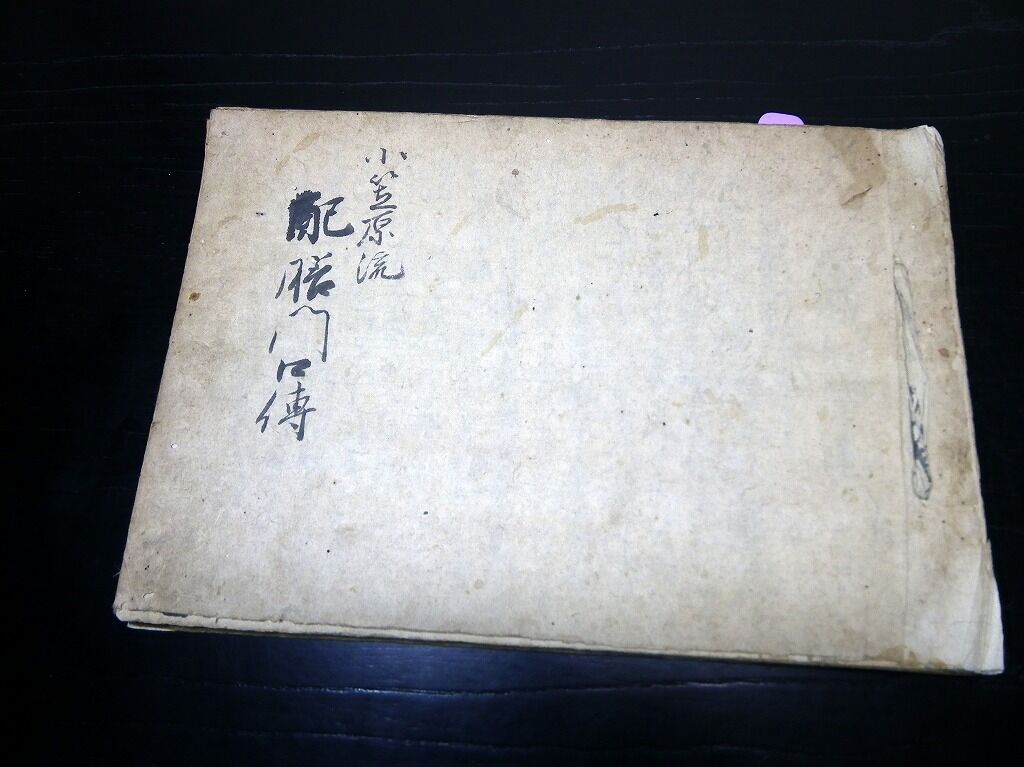 小笠原流
配膳門口傳